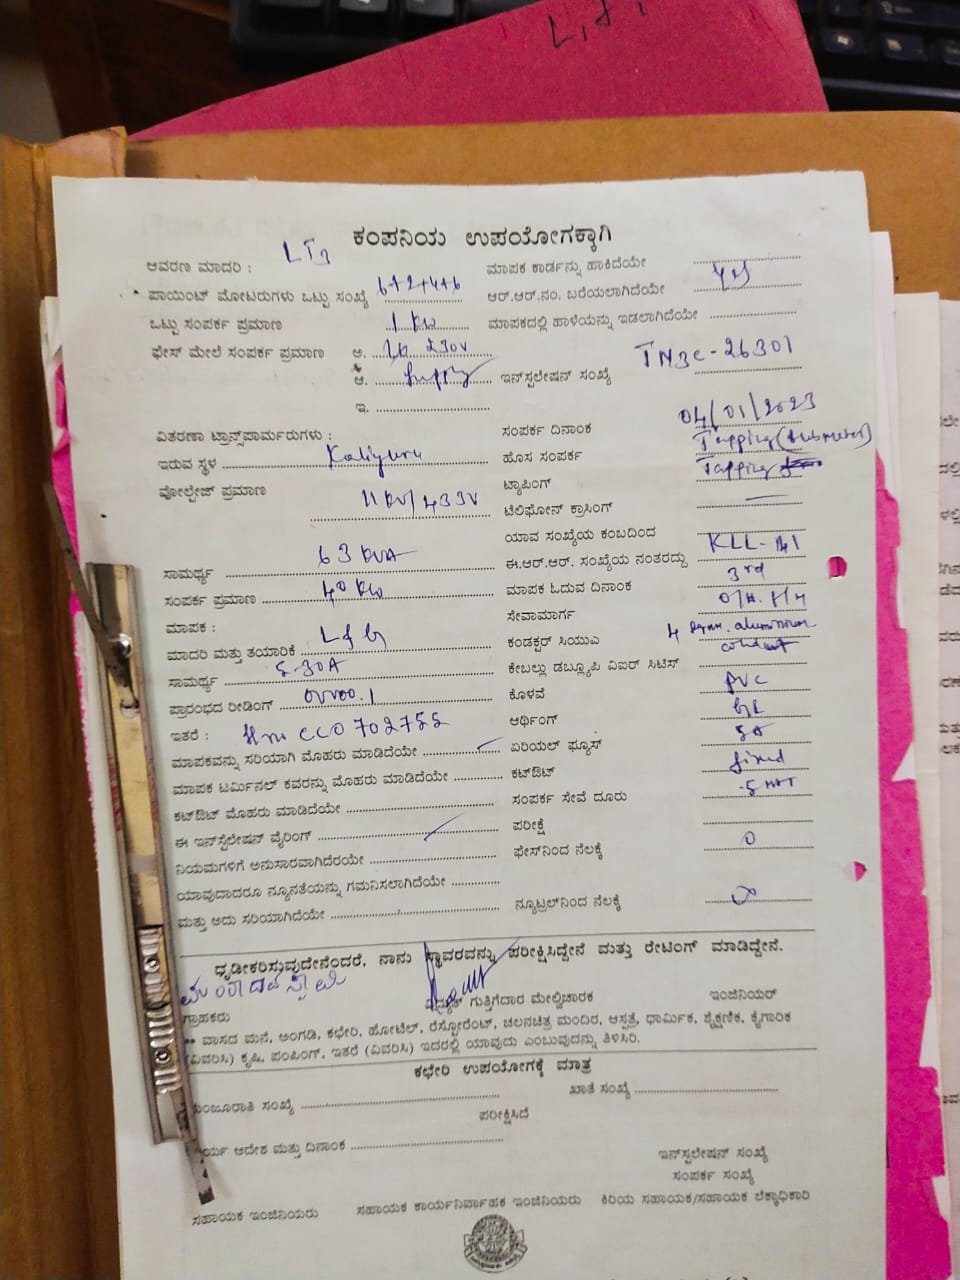 ಕಂಪನಿಯ ಉಪಯೋಗಕ್ಕಾಗಿ
ಆವರಣ ಮಾದರಿ : LT3 ಮಾಪಕ ಕಾರ್ಡನ್ನು ಹಾಕಿದೆಯೇ
ಪಾಯಿಂಟ್ ಮೋಟರುಗಳು ಒಟ್ಟು ಸಂಖ್ಯೆ 6+2+4+6 ಆರ್.ಆರ್.ನಂ. ಬರೆಯಲಾಗಿದೆಯೇ yes
ಒಟ್ಟು ಸಂಪರ್ಕ ಪ್ರಮಾಣ 1 KW ಮಾಪಕದಲ್ಲಿ ಹಾಳೆಯನ್ನು ಇಡಲಾಗಿದೆಯೇ
ಫೇಸ್ ಮೇಲೆ ಸಂಪರ್ಕ ಪ್ರಮಾಣ ಅ. 230V
ಆ. Supply ಇನ್‌ಸ್ಟಲೇಷನ್ ಸಂಖ್ಯೆ TN3C-26301
ಇ.
ವಿತರಣಾ ಟ್ರಾನ್ಸ್‌ಪಾರ್ಮರುಗಳು : ಸಂಪರ್ಕ ದಿನಾಂಕ 04/01/2023
ಇರುವ ಸ್ಥಳ Kaliyuru ಹೊಸ ಸಂಪರ್ಕ Tapping
ವೋಲ್ಟೇಜ್ ಪ್ರಮಾಣ 11 KV/433V ಟ್ಯಾಪಿಂಗ್ Tapping
ಟೆಲಿಫೋನ್ ಕ್ರಾಸಿಂಗ್
ಯಾವ ಸಂಖ್ಯೆಯ ಕಂಬದಿಂದ
ಸಾಮರ್ಥ್ಯ 63 KVA ಈ.ಆರ್.ಆರ್. ಸಂಖ್ಯೆಯ ನಂತರದ್ದು KLL-141
ಸಂಪರ್ಕ ಪ್ರಮಾಣ 40 KW ಮಾಪಕ ಓದುವ ದಿನಾಂಕ 3rd
ಮಾಪಕ : ಸೇವಾಮಾರ್ಗ
ಮಾದರಿ ಮತ್ತು ತಯಾರಿಕೆ L&G ಕಂಡಕ್ಟರ್ ಸಿಯುಎ 4 sqmm. aluminium
ಸಾಮರ್ಥ್ಯ 5-30A ಕೇಬಲ್ಲು ಡಬ್ಲ್ಯೂಪಿ ವಿಐರ್ ಸಿಟಿಸ್
ಪ್ರಾರಂಭದ ರೀಡಿಂಗ್ 00000.1 ಕೊಳವೆ PVC
ಇತರೆ : CCO 702755 ಆರ್ಥಿಂಗ್ GI
ಮಾಪಕವನ್ನು ಸರಿಯಾಗಿ ಮೊಹರು ಮಾಡಿದೆಯೇ ಏರಿಯಲ್ ಫ್ಯೂಸ್ 5A
ಮಾಪಕ ಟರ್ಮಿನಲ್ ಕವರನ್ನು ಮೊಹರು ಮಾಡಿದೆಯೇ ಕಟ್‌ಔಟ್ fixed
ಕಟ್‌ಔಟ್ ಮೊಹರು ಮಾಡಿದೆಯೇ ಸಂಪರ್ಕ ಸೇವೆ ದೂರು
ಈ ಇನ್‌ಸ್ಟೆಲೇಷನ್ ವೈರಿಂಗ್ ಪರೀಕ್ಷೆ
ನಿಯಮಗಳಿಗೆ ಅನುಸಾರವಾಗಿದೆರೆಯೇ ಫೇಸ್‌ನಿಂದ ನೆಲಕ್ಕೆ 0
ಯಾವುದಾದರೂ ನ್ಯೂನತೆಯನ್ನು ಗಮನಿಸಲಾಗಿದೆಯೇ
ಮತ್ತು ಅದು ಸರಿಯಾಗಿದೆಯೇ ನ್ಯೂಟ್ರಲ್‌ನಿಂದ ನೆಲಕ್ಕೆ
ಧೃಡೀಕರಿಸುವುದೇನೆಂದರೆ, ನಾನು ಸ್ಥಾವರವನ್ನು ಪರೀಕ್ಷಿಸಿದ್ದೇನೆ ಮತ್ತು ರೇಟಿಂಗ್ ಮಾಡಿದ್ದೇನೆ.
ಗ್ರಾಹಕರು ವಿದ್ಯುತ್ ಗುತ್ತಿಗೆದಾರ ಮೇಲ್ವಿಚಾರಕ ಇಂಜಿನಿಯರ್
** ವಾಸದ ಮನೆ, ಅಂಗಡಿ, ಕಛೇರಿ, ಹೋಟೆಲ್, ರೆಸ್ಟೋರೆಂಟ್, ಚಲನಚಿತ್ರ ಮಂದಿರ, ಆಸ್ಪತ್ರೆ, ಧಾರ್ಮಿಕ, ಶೈಕ್ಷಣಿಕ, ಕೈಗಾರಿಕ
(ವಿವರಿಸಿ) ಕೃಷಿ, ಪಂಪಿಂಗ್, ಇತರೆ (ವಿವರಿಸಿ) ಇದರಲ್ಲಿ ಯಾವುದು ಎಂಬುವುದನ್ನು ತಿಳಿಸಿರಿ.
ಕಛೇರಿ ಉಪಯೋಗಕ್ಕೆ ಮಾತ್ರ
ಮಂಜೂರಾತಿ ಸಂಖ್ಯೆ ಖಾತೆ ಸಂಖ್ಯೆ
ಪರೀಕ್ಷಿಸಿದೆ
ಕಾರ್ಯ ಆದೇಶ ಮತ್ತು ದಿನಾಂಕ
ಇನ್‌ಸ್ಟಲೇಷನ್ ಸಂಖ್ಯೆ
ಸಂಪರ್ಕ ಸಂಖ್ಯೆ
ಸಹಾಯಕ ಇಂಜಿನಿಯರು ಸಹಾಯಕ ಕಾರ್ಯನಿರ್ವಾಹಕ ಇಂಜಿನಿಯರು ಕಿರಿಯ ಸಹಾಯಕ/ಸಹಾಯಕ ಲೆಕ್ಕಾಧಿಕಾರಿ